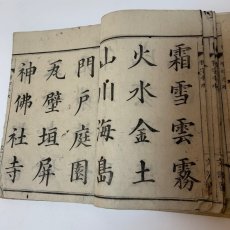 霜雪雲霧
火水金土
山川海島
門戸庭園
瓦壁垣屏
神佛社寺